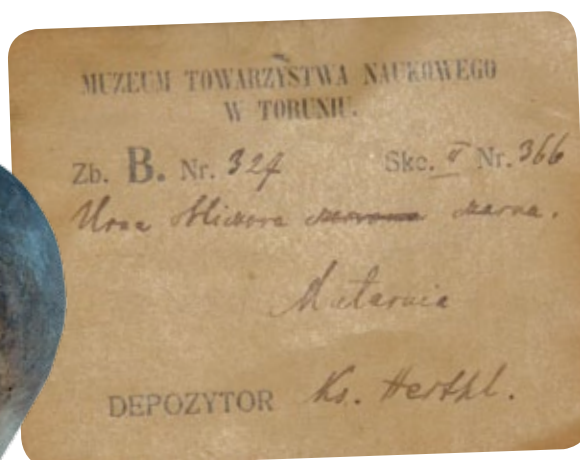 MUZEUM TOWARZYSTWA NAUKOWEGO
W TORUNIU.
Zb. B. Nr. 324 Skc. II Nr. 366
Urna czarna.
Matarnia
DEPOZYTOR Ks. Hertkl.